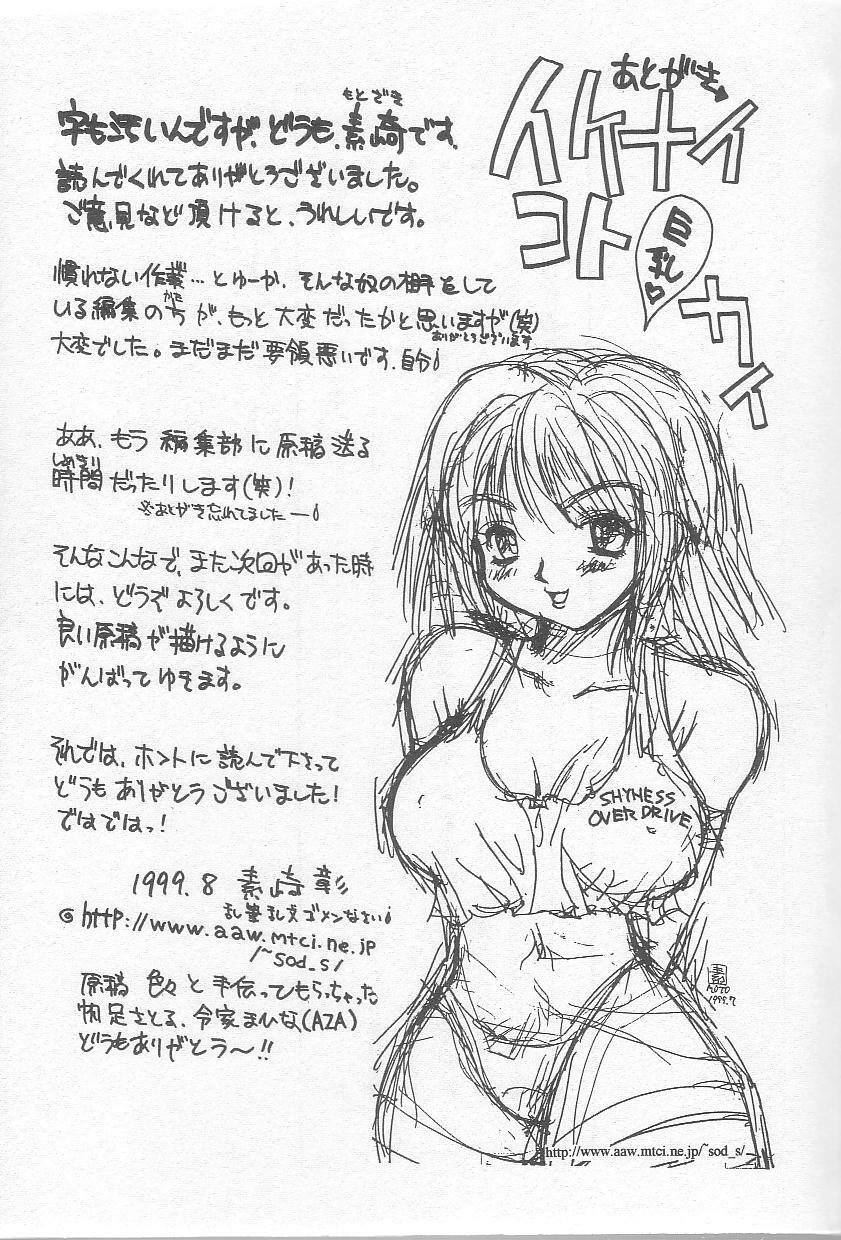 あとがき
イケナイ
コト
巨乳
カイ
もとざき
字も汚いんですが、どうも、素崎です。
読んでくれてありがとうございました。
ご意見など頂けると、うれしいです。
慣れない作業…とゆーか、そんな奴の相手をして
いる編集の方が、もっと大変だったかと思いますが(笑)
かた
ありがとうございます
大変でした。まだまだ要領悪いです、自分
ああ、もう編集部に原稿送る
しめきり
時間だったりします(笑)!
※あとがき忘れてましたー
そんなこんなで、また次回があった時
には、どうぞよろしくです。
良い原稿が描けるように
がんばってゆきます。
それでは、ホントに読んで下さって
どうもありがとうございました!
ではではっ!
1999.8 素崎 彰
乱筆乱文ゴメンなさい
http://www.aaw.mtci.ne.jp
/~sod_s/
原稿 色々と手伝ってもらっちゃった
帆足さとる、令家まひな(AZA)
どうもありがとう〜!!
SHYNESS
OVER DRIVE
素
MOTO
1999.7
http://www.aaw.mtci.ne.jp/~sod_s/